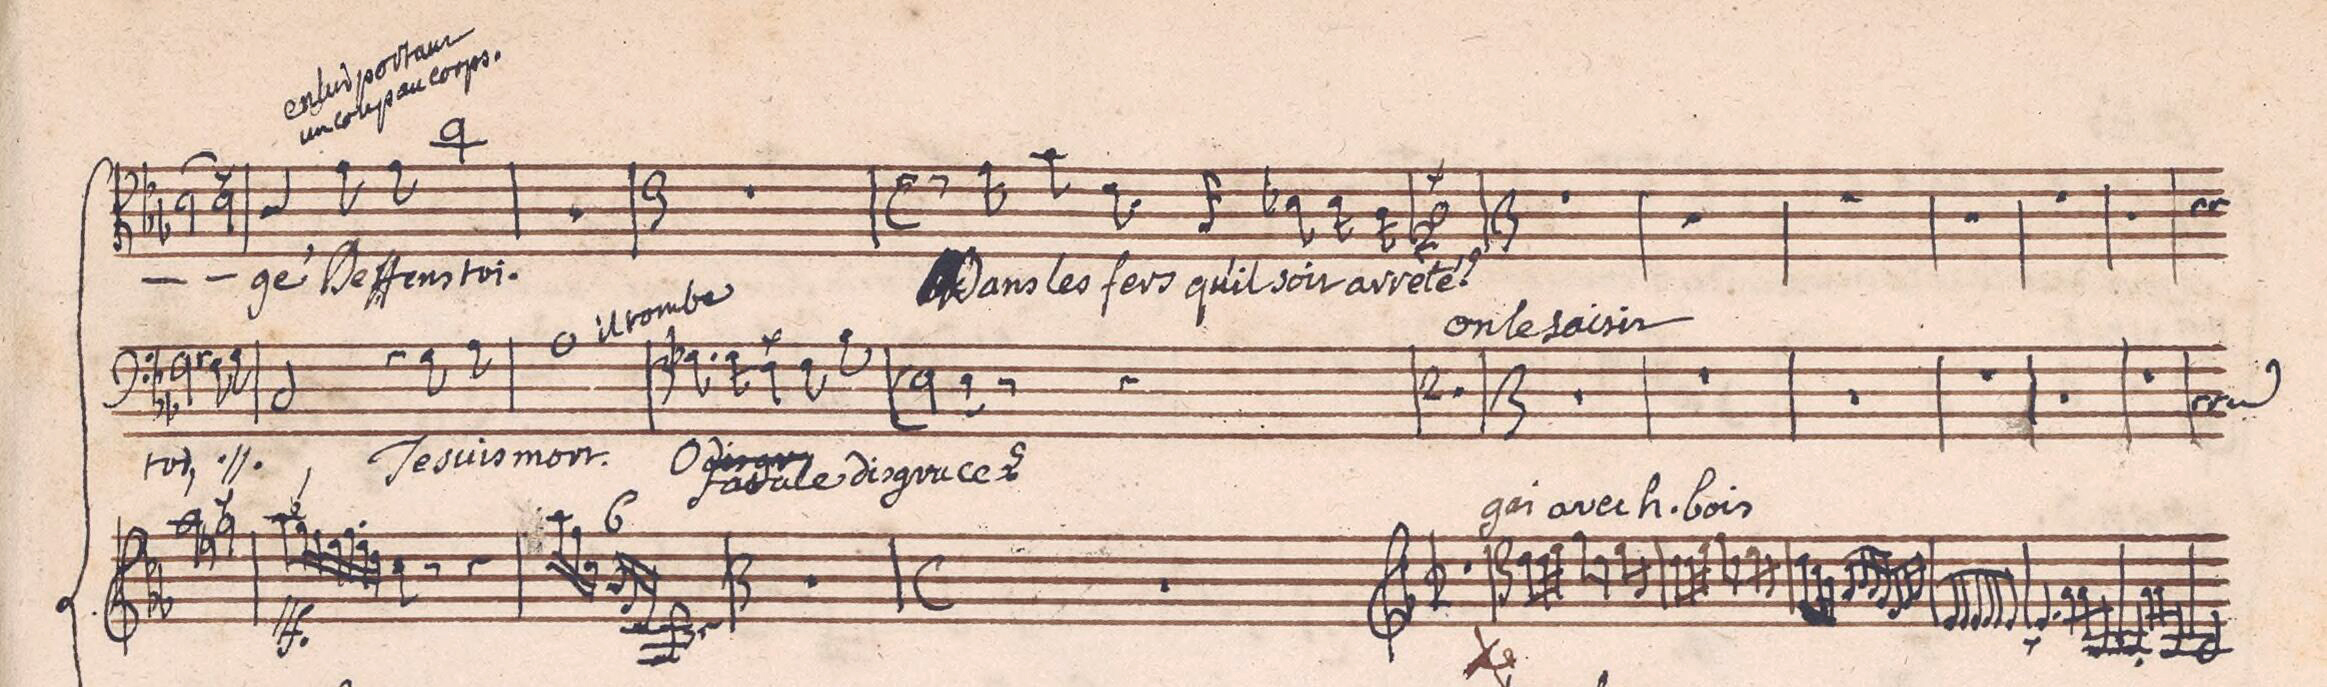 en lui portant
un coup au corps.
— — gé Deffens toi. Dans les fers qu'il soit arrêté!
il tombe
on le saisit
toi, ·//· Je suis mort. O fatale disgrace!
gai avec h. bois
6
ff.